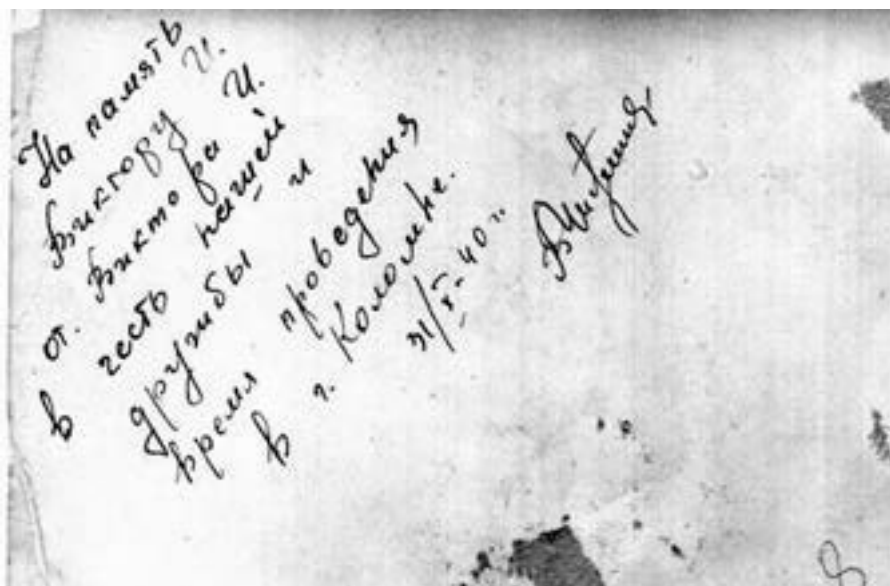 На память
Виктору И.
от. Виктора И.
в честь нашей
дружбы и
время проведения
в г. Коломне.
31/X-40 г.